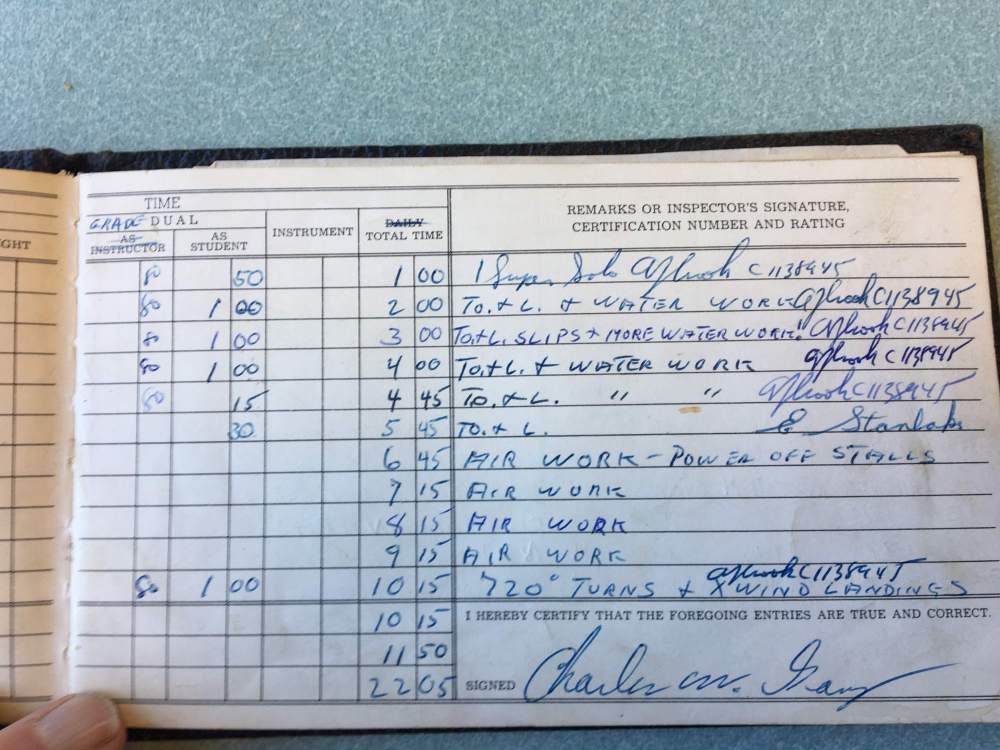 TIME
GRADE DUAL
GHT
AS INSTRUCTOR
AS STUDENT
INSTRUMENT
DAILY TOTAL TIME
REMARKS OR INSPECTOR'S SIGNATURE,
CERTIFICATION NUMBER AND RATING
80 50 1 00 1 Super Solo C1138945
80 1 00 2 00 T.O. + L. + WATER WORK C1138945
80 1 00 3 00 T.O. + L. SLIPS + MORE WATER WORK! C1138945
80 1 00 4 00 T.O. + L. + WATER WORK C1138945
80 15 4 45 T.O. + L. " " C1138945
30 5 45 T.O. + L. E
6 45 AIR WORK - POWER OFF STALLS
7 15 AIR WORK
8 15 AIR WORK
9 15 AIR WORK
C1138945
80 1 00 10 15 720° TURNS + X WIND LANDINGS
10 15 I HEREBY CERTIFY THAT THE FOREGOING ENTRIES ARE TRUE AND CORRECT.
11 50
22 05 SIGNED Charles W.